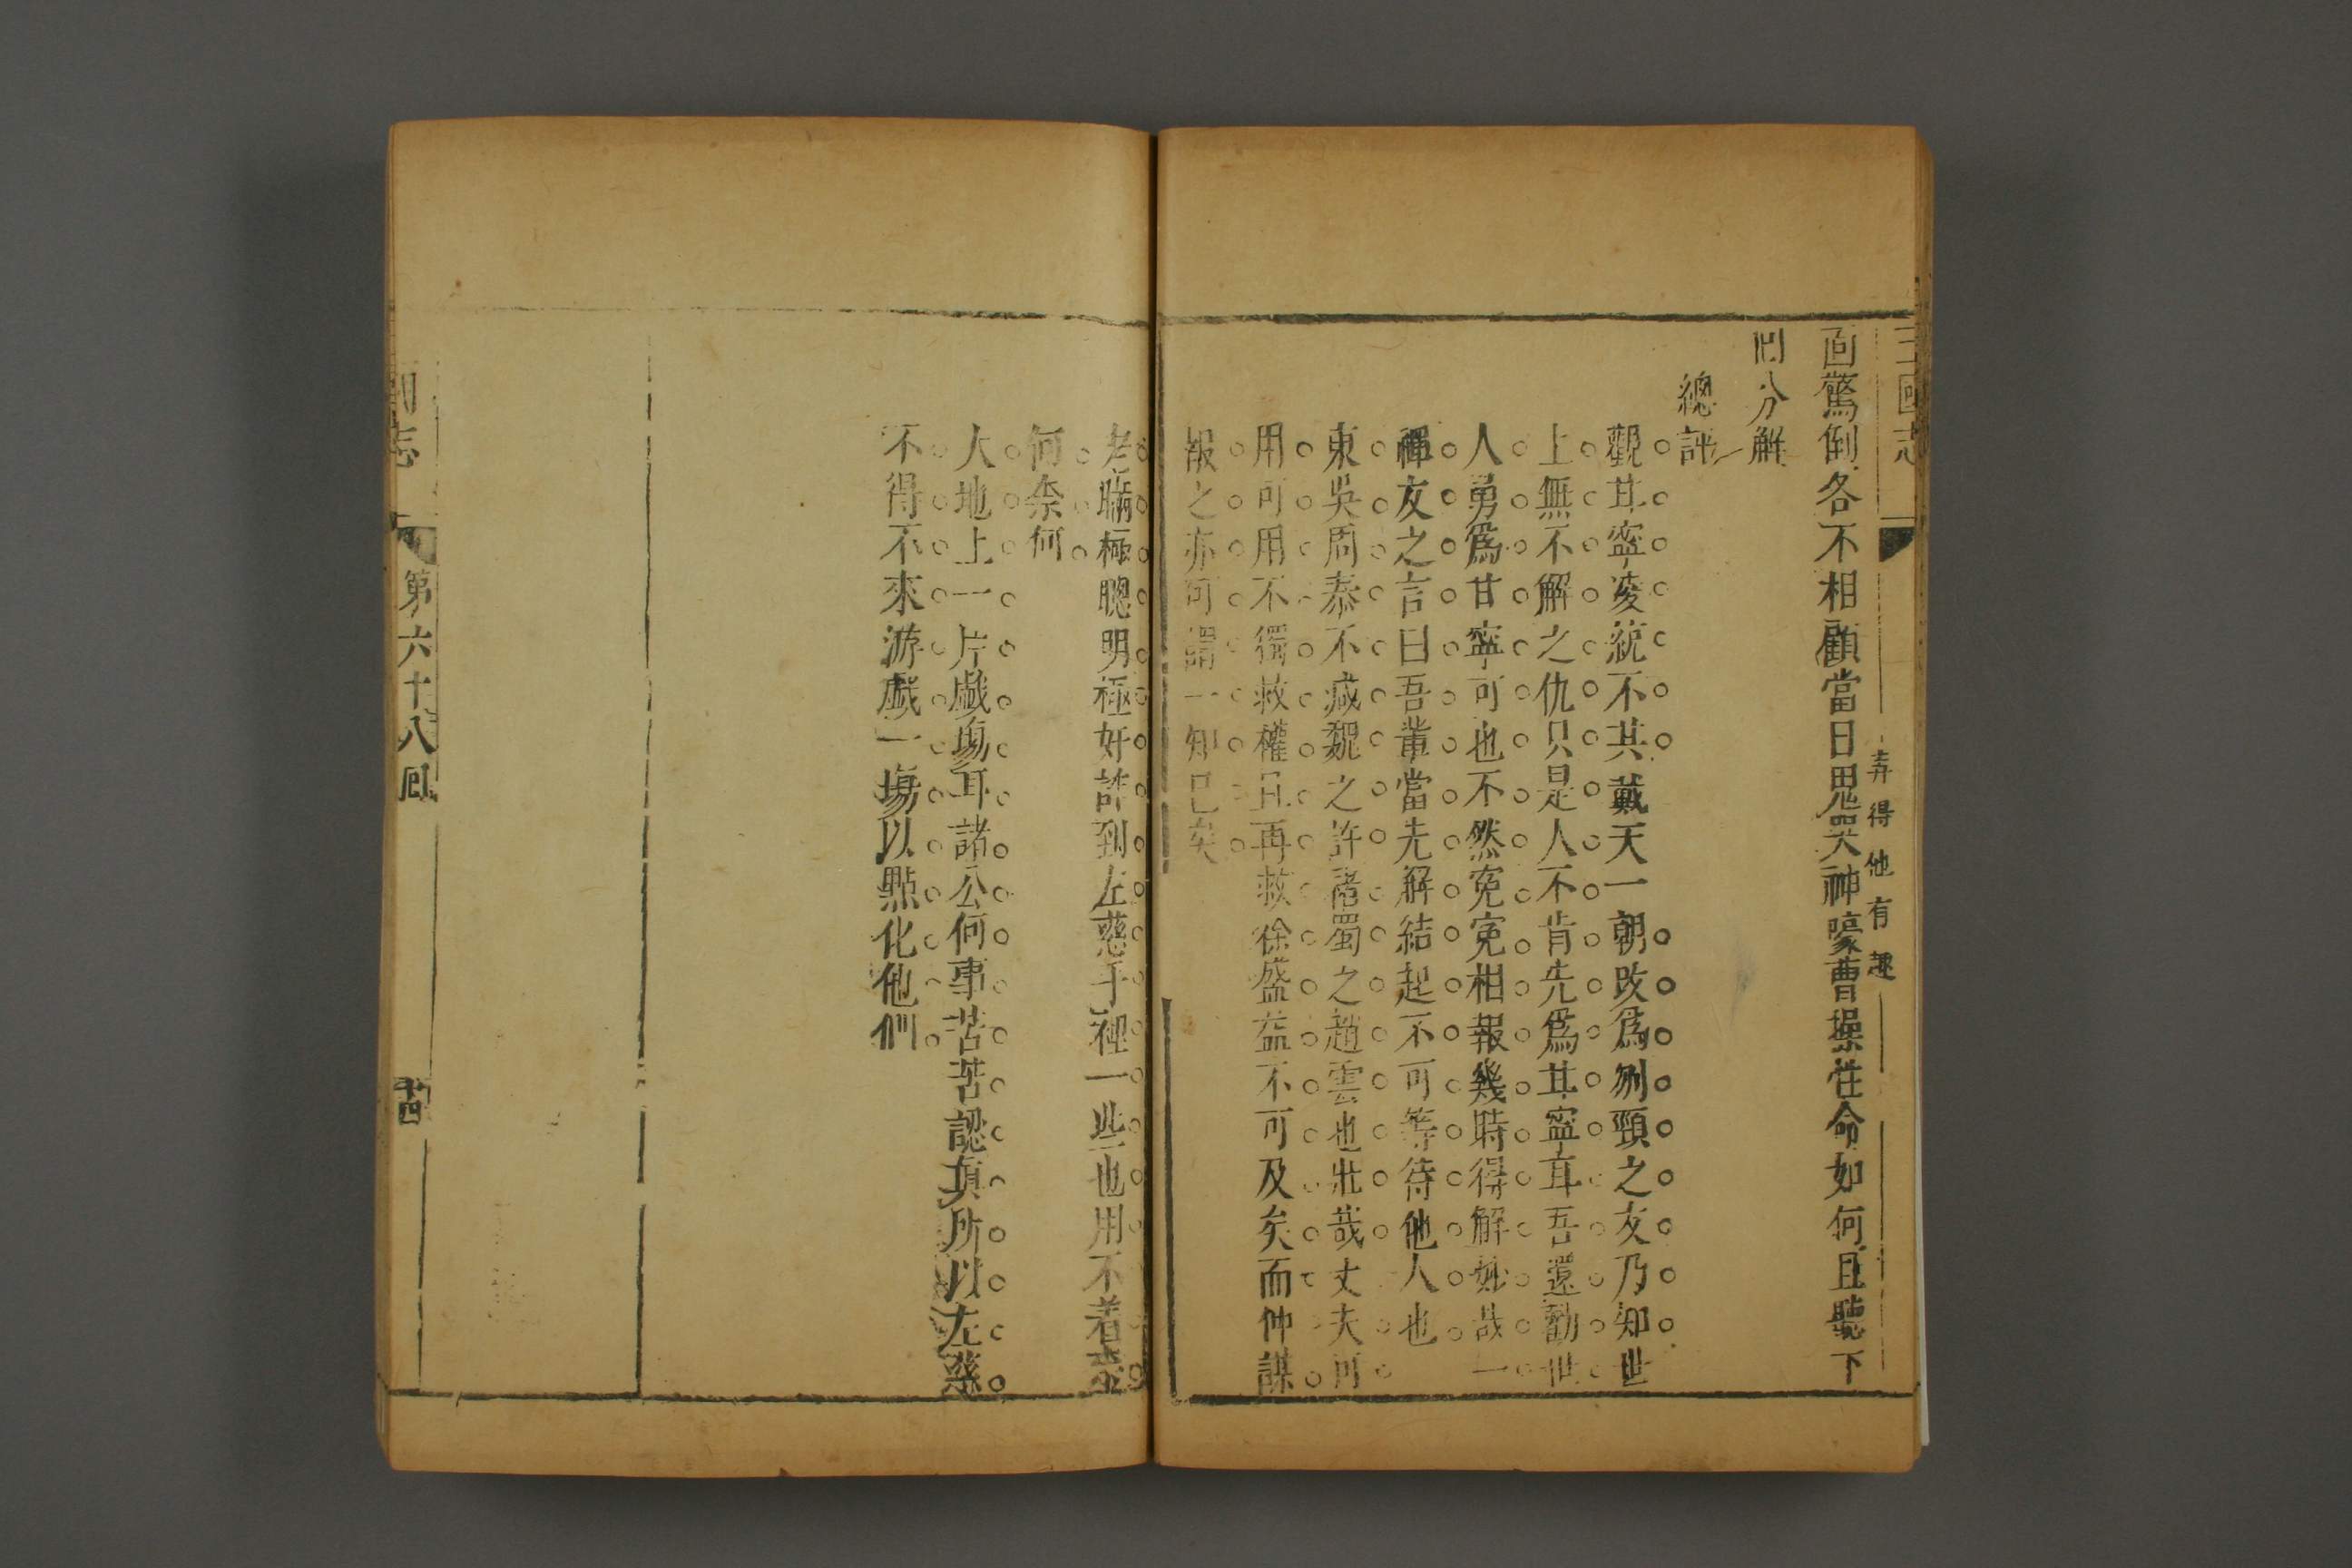 三國志
面驚倒各不相顧當日鬼哭神嚎曹操性命如何且聽下
弄得他有趣
回分解
總評
觀甘寧凌統不共戴天一朝改爲刎頸之友乃知世
上無不解之仇只是人不肯先爲甘寧耳吾還勸世
人勇爲甘寧可也不然冤冤相報幾時得解妙哉一
禪友之言曰吾輩當先解結起不可等待他人也
東吳周泰不减魏之許禇蜀之趙雲也壯哉丈夫可
用可用不獨救權且再救徐盛益不可及矣而仲謀
報之亦可謂一知已矣
老瞞極聰明極奸詐到左慈手裡一些也用不着柰
何柰何
大地上一片戲塲耳諸公何事苦苦認真所以左慈
不得不來游戲一塲以點化他們
國志
第六十八回
十四